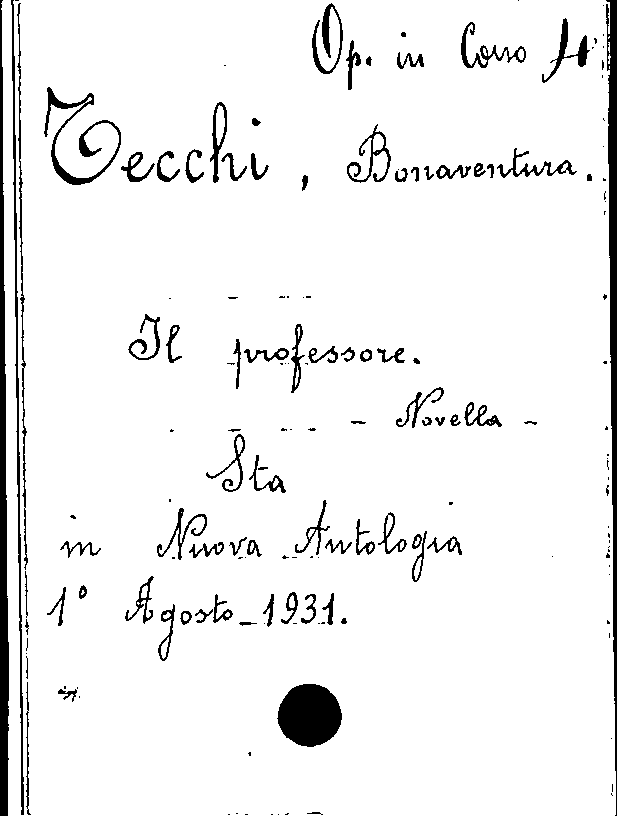 Op. in Corso H
Tecchi, Bonaventura.
Il professore.
- Novella -
Sta
in Nuova Antologia
1° Agosto_1931.